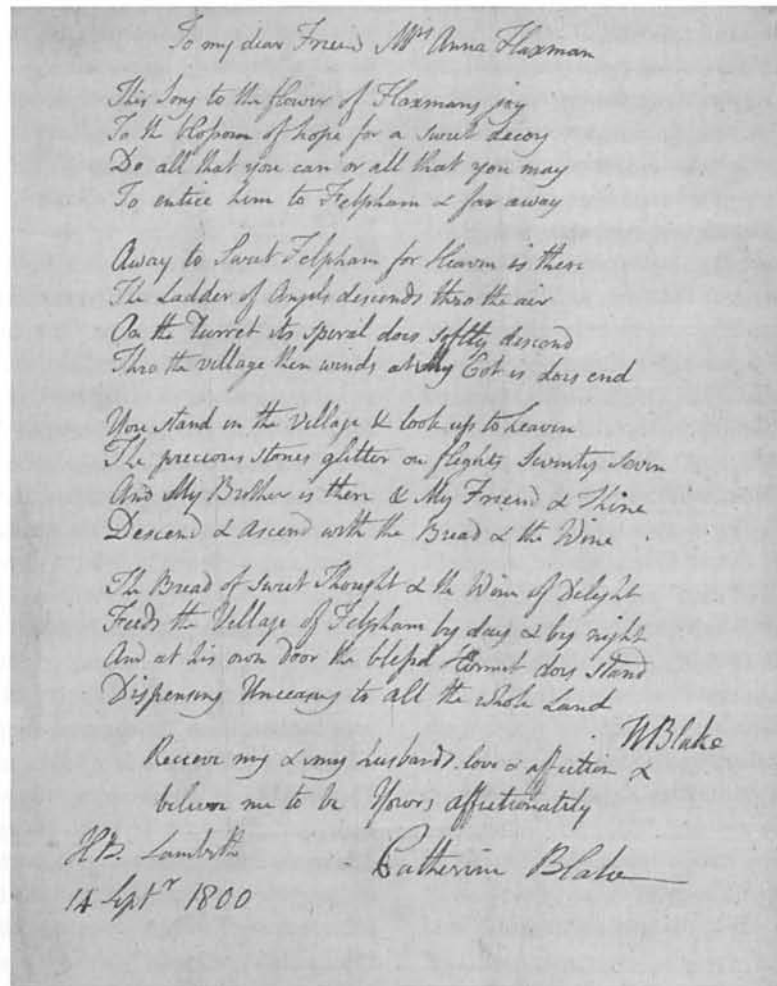 To my dear Friend Mrs Anna Flaxman
This Song to the flower of Flaxmans joy
To the blossom of hope for a sweet decoy
Do all that you can or all that you may
To entice him to Felpham & far away
Away to Sweet Felpham for Heaven is there
The Ladder of Angels descends thro the air
On the Turret its spiral does softly descend
Thro the village then winds at My Cot it does end
You stand in the village & look up to heaven
The precious stones glitter on flights seventy seven
And My Brother is there & My Friend & Thine
Descend & Ascend with the Bread & the Wine
The Bread of sweet Thought & the Wine of Delight
Feeds the Village of Felpham by day & by night
And at his own door the blessd Hermit does stand
Dispensing Unceasing to all the whole Land
WBlake
Recieve my & my husbands love & affection &
believe me to be Yours affectionately
Catherine Blake
HB. Lambeth
14 Septr 1800